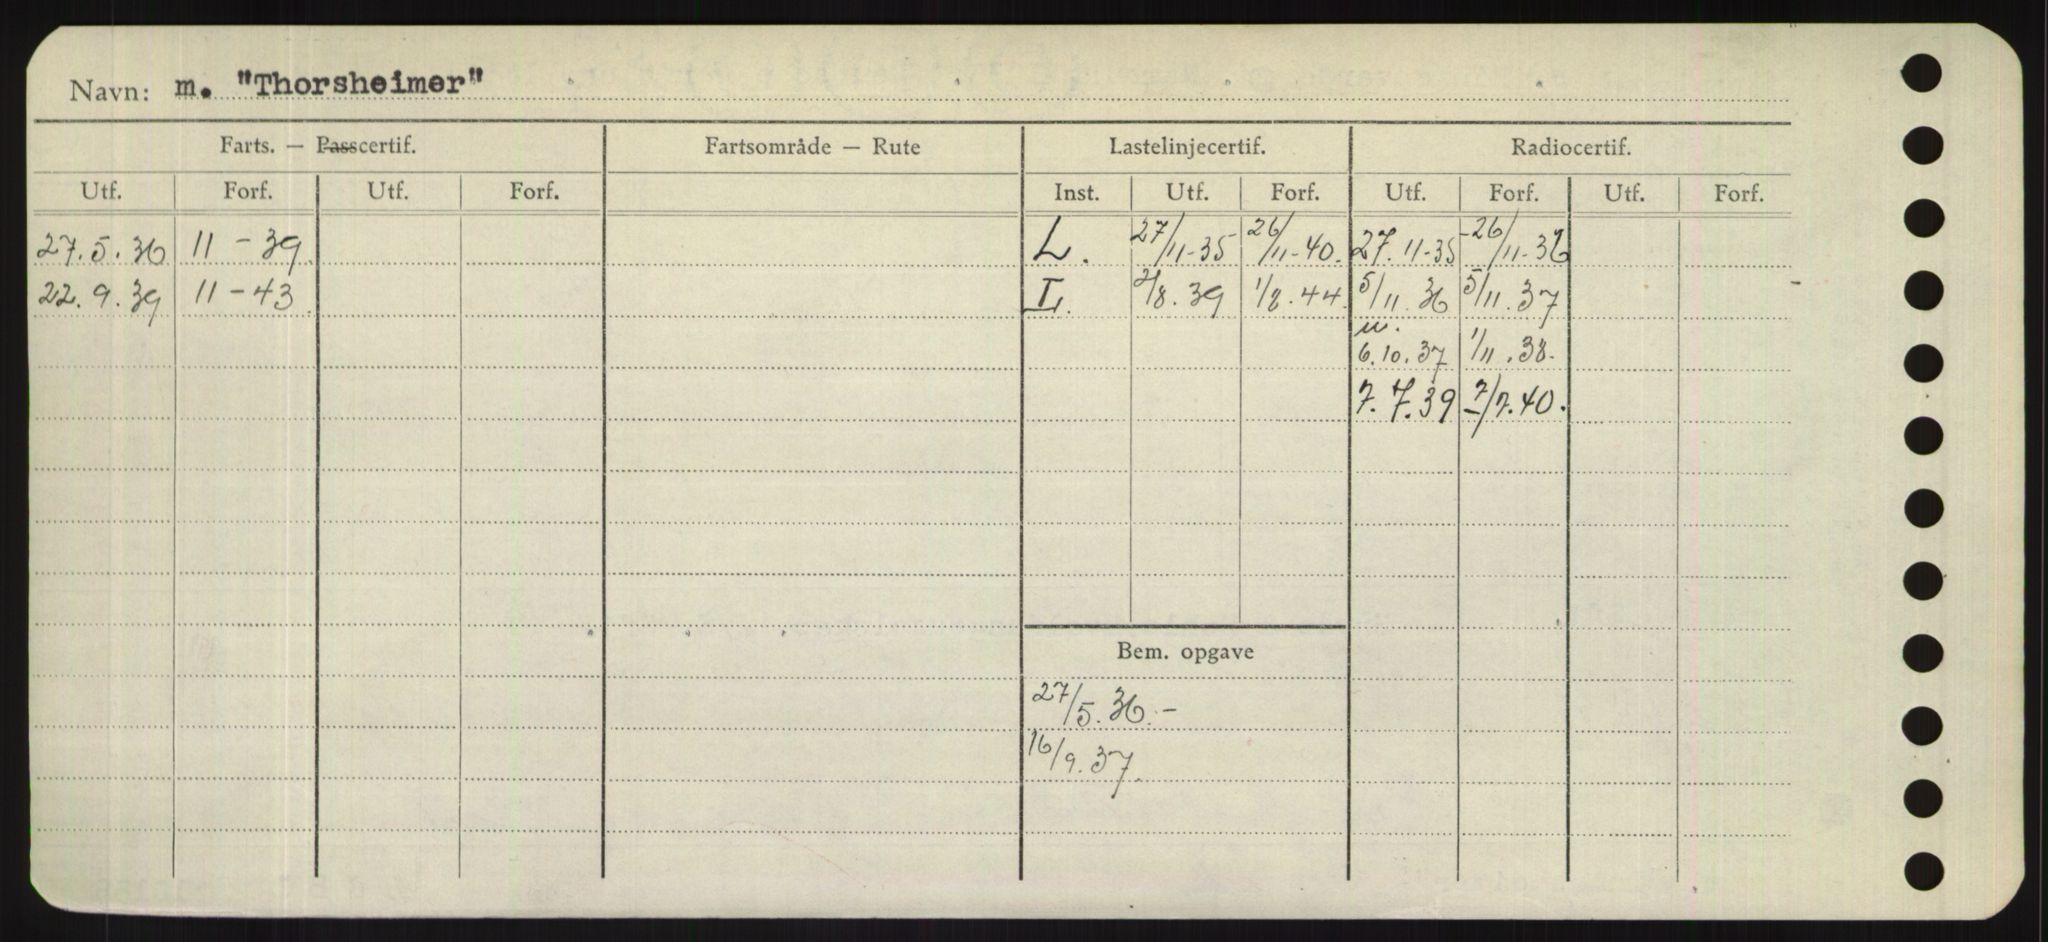 Navn: m. "Thorsheimer"
Farts. — Passcertif. Fartsområde — Rute Lastelinjecertif. Radiocertif.
Utf. Forf. Utf. Forf. Inst. Utf. Forf. Utf. Forf. Utf. Forf.
27.5.36 11-39. L. 27/11-35 26/11-40. 27.11-35 26/11-36
22.9.39 11-43 L. 2/8.39 1/8.44. 5/11.36 5/11.37
6.10.37 1/11.38.
7.7.39 7/7.40.
Bem. opgave
27/5.36.-
16/9.37.